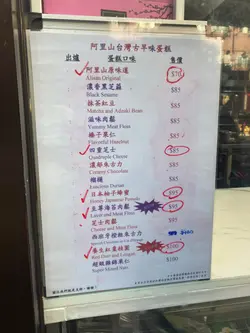 阿里山台灣古早味蛋糕
出爐 蛋糕口味 售價
阿里山原味道 $70
Alisan Original
濃香黑芝麻 $85
Black Sesame
抹茶紅豆 $85
Matcha and Adzuki Bean
滋味肉鬆 $85
Yummy Meat Floss
榛子果仁 $85
Flavorful Hazelnut
四重芝士 $85
Quadruple Cheese
濃郁朱古力 $85
Creamy Chocolate
榴槤 $85
Luscious Durian
日本柚子蜂蜜 $95
Honey Japanese Pomelo
至尊海苔肉鬆 $95
Laver and Meat Floss
芝士肉鬆 $95
Cheese and Meat Floss
西班牙橙朱古力
養生紅棗桂圓 $100
Red Date and Longan
超級雜錦果仁 $100
Super Mixed Nuts